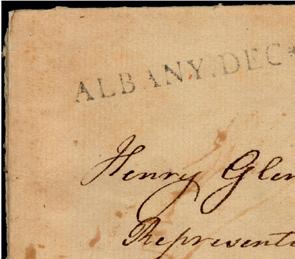 ALBANY. DEC
Henry Glen
Represent